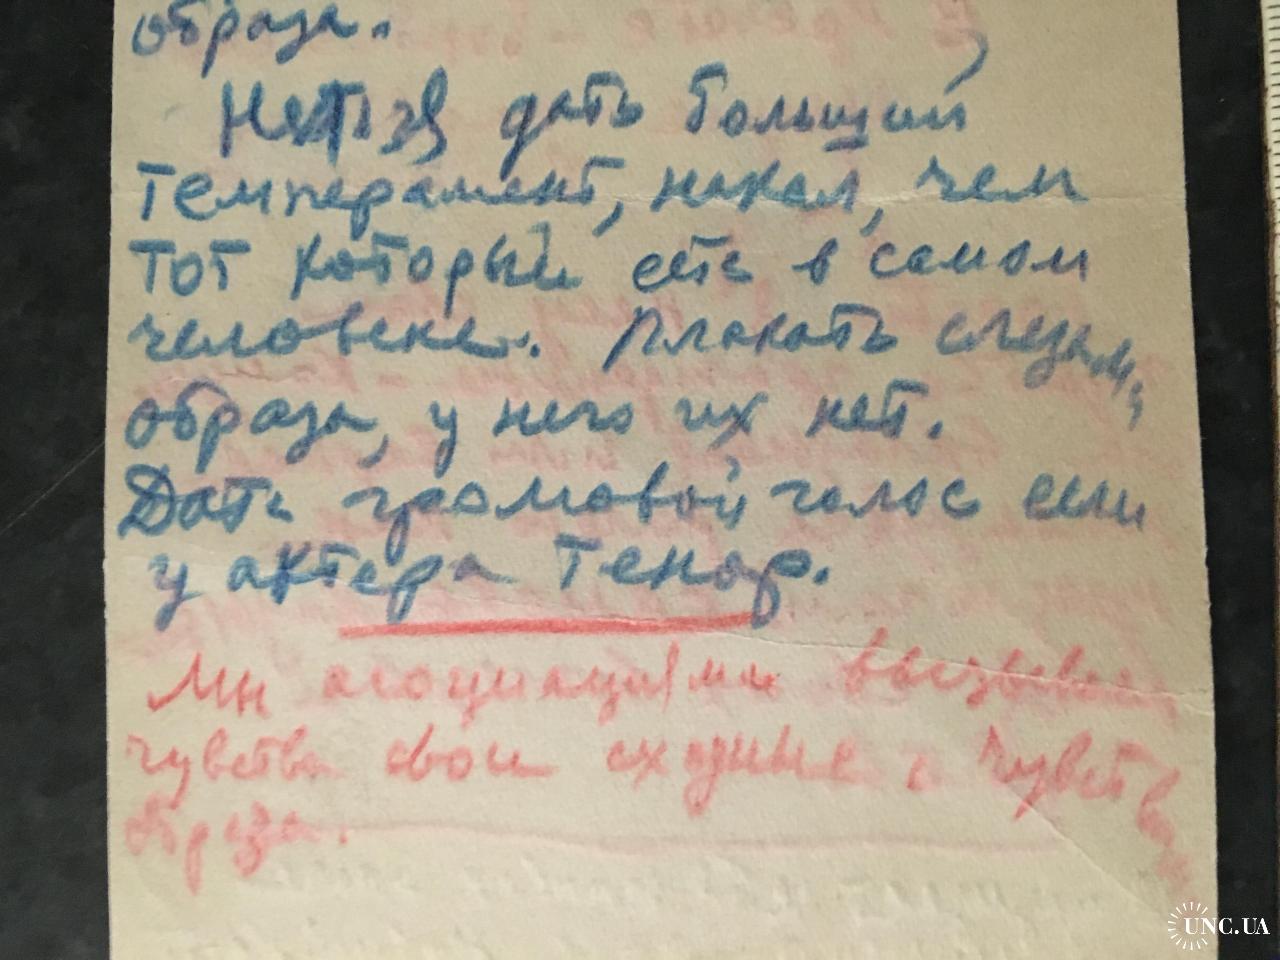 образа.
Нельзя дать больший
темперамент, накал, чем
тот который есть в самом
человеке. Плакать слезами
образа, у него их нет.
Дать громовой голос если
у актера тенор.
Мы асоциациями вызываем
чувства свои сходные с чувствами
образа.
UNC.UA